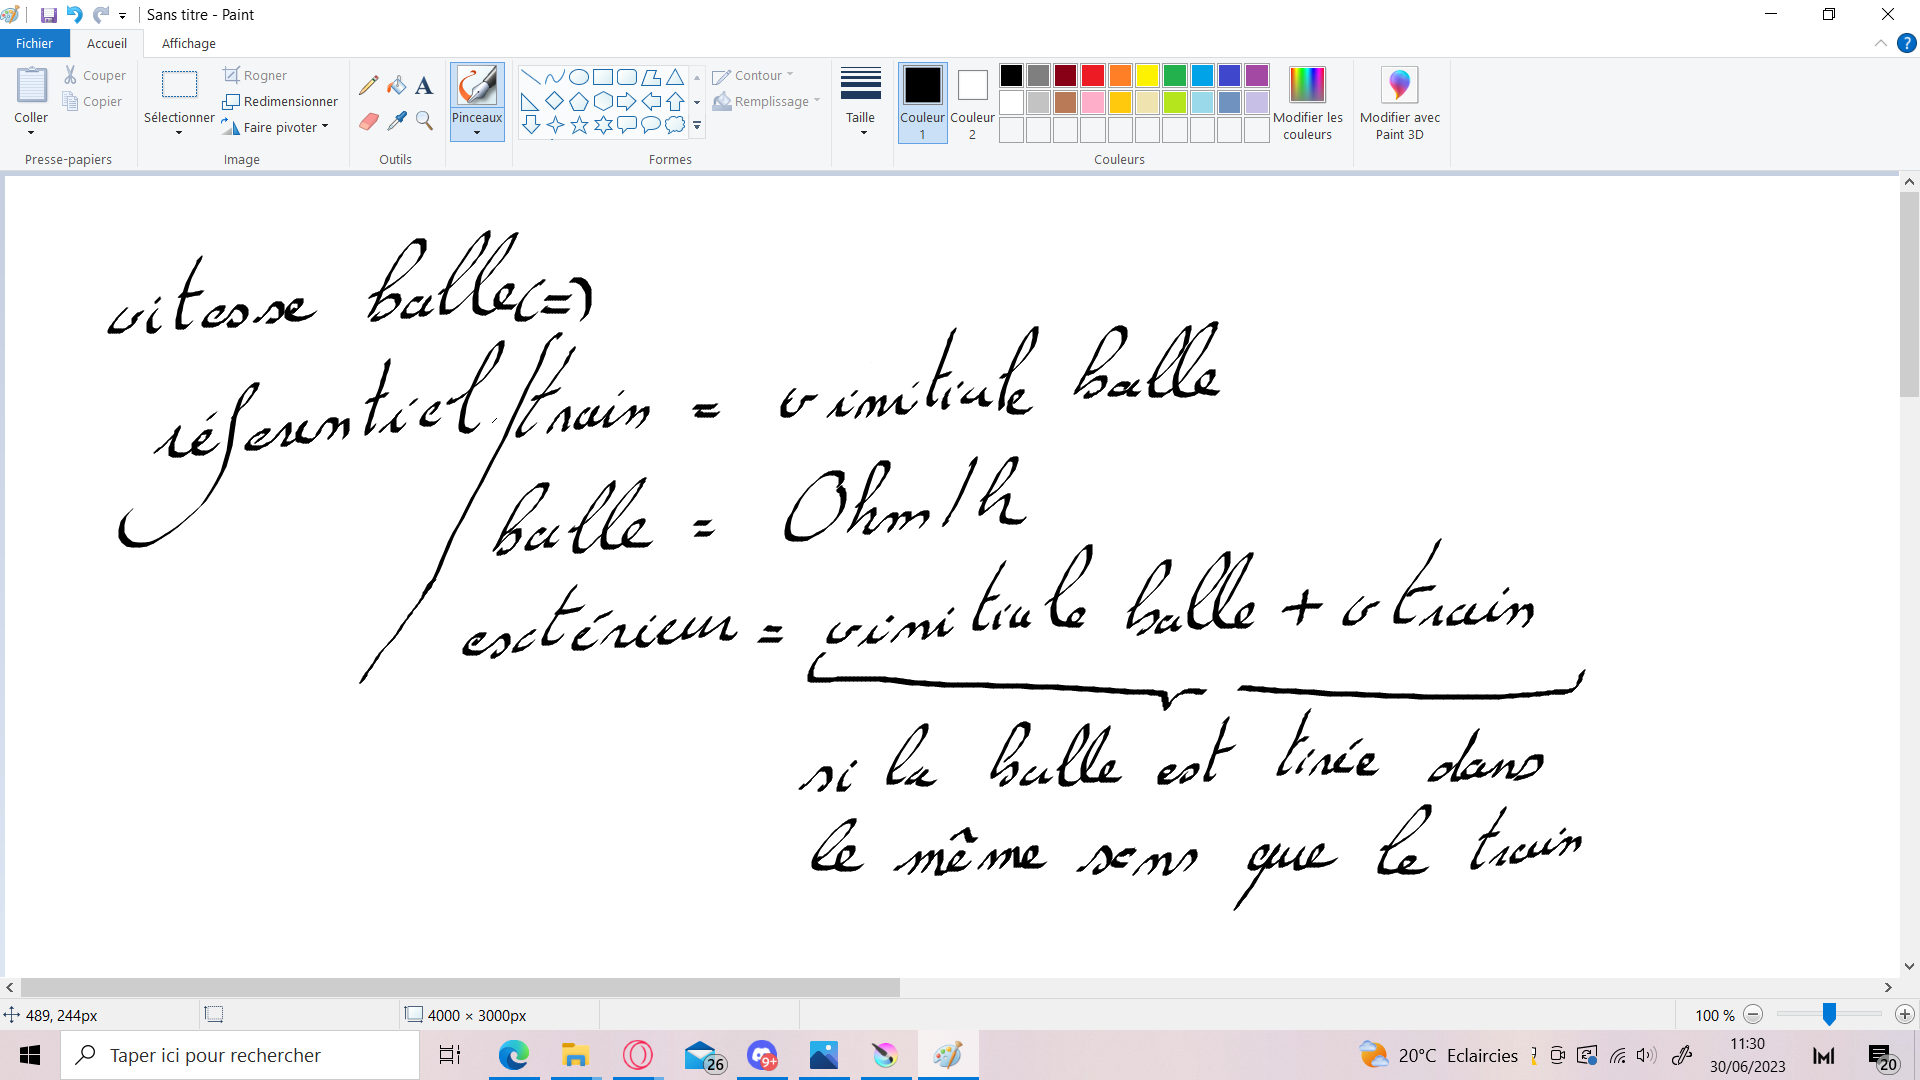 Sans titre - Paint
Fichier Accueil Affichage
Coller
Couper
Copier
Presse-papiers
Sélectionner
Rogner
Redimensionner
Faire pivoter
Image
A
Outils
Pinceaux
Contour
Remplissage
Formes
Taille
Couleur 1
Couleur 2
Modifier les couleurs
Couleurs
Modifier avec Paint 3D
vitesse balle(=)
référentiel/train = v initiale balle
balle = 0km/h
extérieur = v initiale balle + v train
si la balle est tirée dans
le même sens que le train
489, 244px 4000 × 3000px 100 %
Taper ici pour rechercher 26 9+ 20°C Eclaircies 11:30
30/06/2023 20